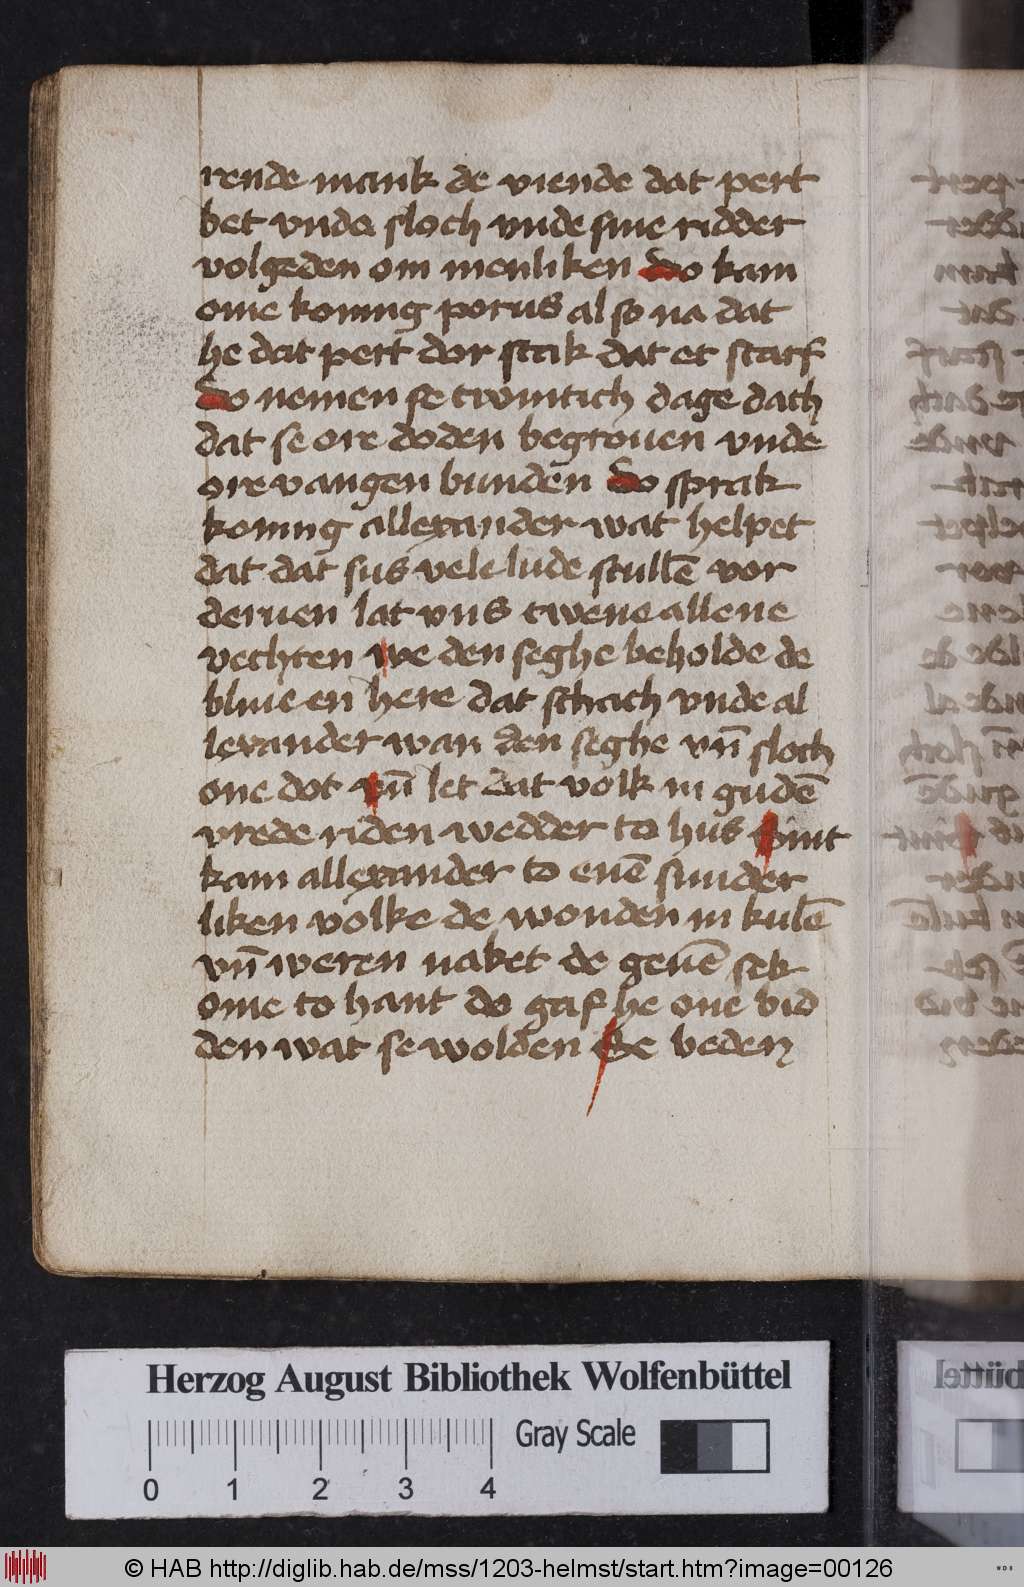 rende mank de viende dat pert
bet vnde sloch vnde sine ridder
volgeden om menliken do kam
ome koning porus al so na dat
he dat pert dor stak dat et starf
do nemen se twintich dage dach
dat se ore doden begrouen vnde
ore vangen bunden do sprak
koning allexander wat helpet
dat dat sus vele lude stullē vor
deruen lat vns twene allene
vechten we den seghe beholde de
bliue en here dat schach vnde al
lexander wan den seghe vn̄ sloch
one dot vn̄ let dat volk in gudē
vrede riden wedder to hus Sint
kam allexander to enē sunder
liken volke de wonden in kulē
vn̄ weren naket de geuē sek
ome to hant do gaf he one bid
den wat se wolden Se beden
Herzog August Bibliothek Wolfenbüttel
Gray Scale
0 1 2 3 4
© HAB http://diglib.hab.de/mss/1203-helmst/start.htm?image=00126